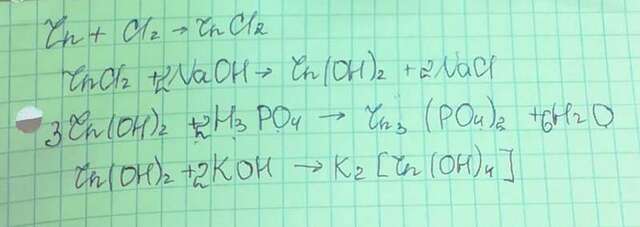 Zn + Cl₂ → ZnCl₂
ZnCl₂ + 2NaOH → Zn(OH)₂ + 2NaCl
3Zn(OH)₂ + 2H₃PO₄ → Zn₃(PO₄)₂ + 6H₂O
Zn(OH)₂ + 2KOH → K₂[Zn(OH)₄]